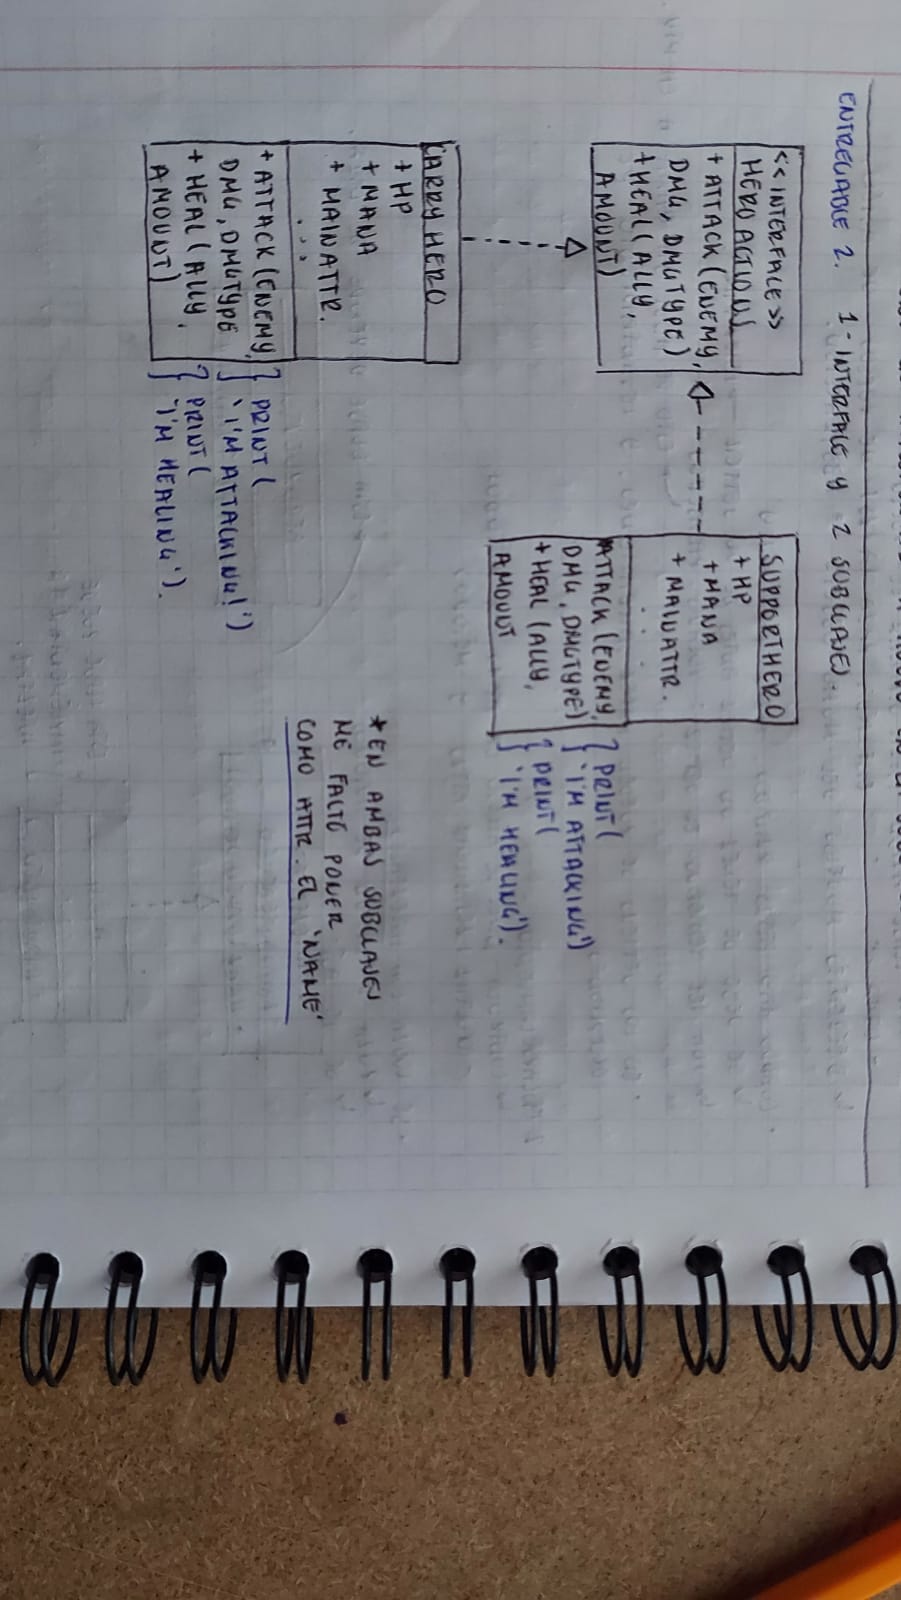 ENTREGABLE 2. 1- INTERFACE Y 2 SUBCLASES.
<<INTERFACE>>
HERO ACTIONS
+ ATTACK (ENEMY,
DMG, DMGTYPE)
+ HEAL (ALLY,
AMOUNT)
SUPPORTHERO
+ HP
+ MANA
+ MAINATTR.
. . .
ATTACK (ENEMY,
DMG, DMGTYPE)
+ HEAL (ALLY,
AMOUNT
} PRINT(
'I'M ATTACKING')
} PRINT(
'I'M HEALING').
CARRY HERO
+ HP
+ MANA
+ MAINATTR.
. . .
+ ATTACK (ENEMY,
DMG, DMGTYPE
+ HEAL (ALLY,
AMOUNT)
} PRINT(
'I'M ATTACKING!')
} PRINT(
'I'M HEALING').
* EN AMBAS SUBCLASES
ME FALTÓ PONER
COMO ATTR. EL 'NAME'